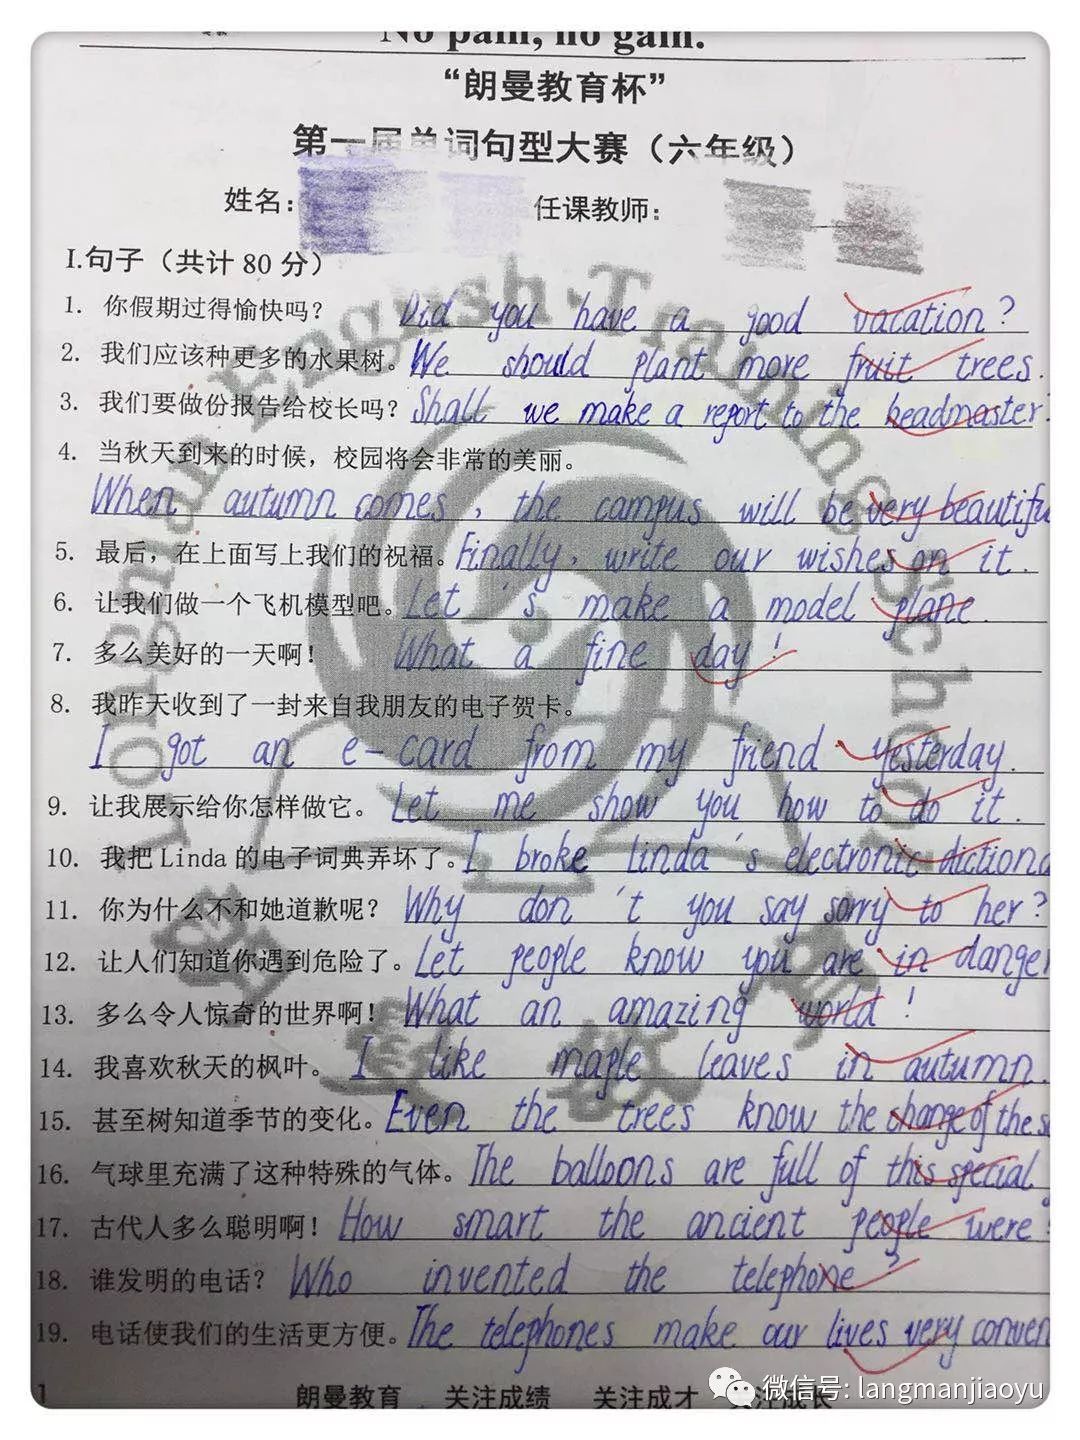 No pain, no gain.
“朗曼教育杯”
第一届单词句型大赛（六年级）
姓名： 任课教师：
I.句子（共计 80 分）
1. 你假期过得愉快吗？ Did you have a good vacation?
2. 我们应该种更多的水果树。 We should plant more fruit trees.
3. 我们要做份报告给校长吗？ Shall we make a report to the headmaster?
4. 当秋天到来的时候，校园将会非常的美丽。
When autumn comes, the campus will be very beautifu
5. 最后，在上面写上我们的祝福。 Finally, write our wishes on it.
6. 让我们做一个飞机模型吧。 Let's make a model plane.
7. 多么美好的一天啊！ What a fine day!
8. 我昨天收到了一封来自我朋友的电子贺卡。
I got an e-card from my friend yesterday.
9. 让我展示给你怎样做它。 Let me show you how to do it.
10. 我把 Linda 的电子词典弄坏了。 I broke Linda's electronic dictiona
11. 你为什么不和她道歉呢？ Why don't you say sorry to her?
12. 让人们知道你遇到危险了。 Let people know you are in danger
13. 多么令人惊奇的世界啊！ What an amazing world!
14. 我喜欢秋天的枫叶。 I like maple leaves in autumn.
15. 甚至树知道季节的变化。 Even the trees know the change of the s
16. 气球里充满了这种特殊的气体。 The balloons are full of this special
17. 古代人多么聪明啊！ How smart the ancient people were!
18. 谁发明的电话？ Who invented the telephone?
19. 电话使我们的生活更方便。 The telephones make our lives very conven
1 朗曼教育 关注成绩 关注成才 关注成长
微信号: langmanjiaoyu
Longman English Training School